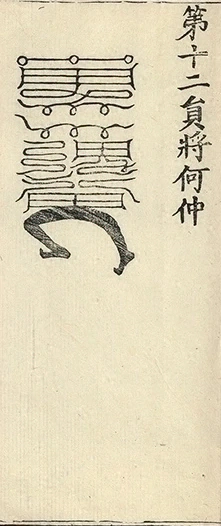 第十二員將何仲